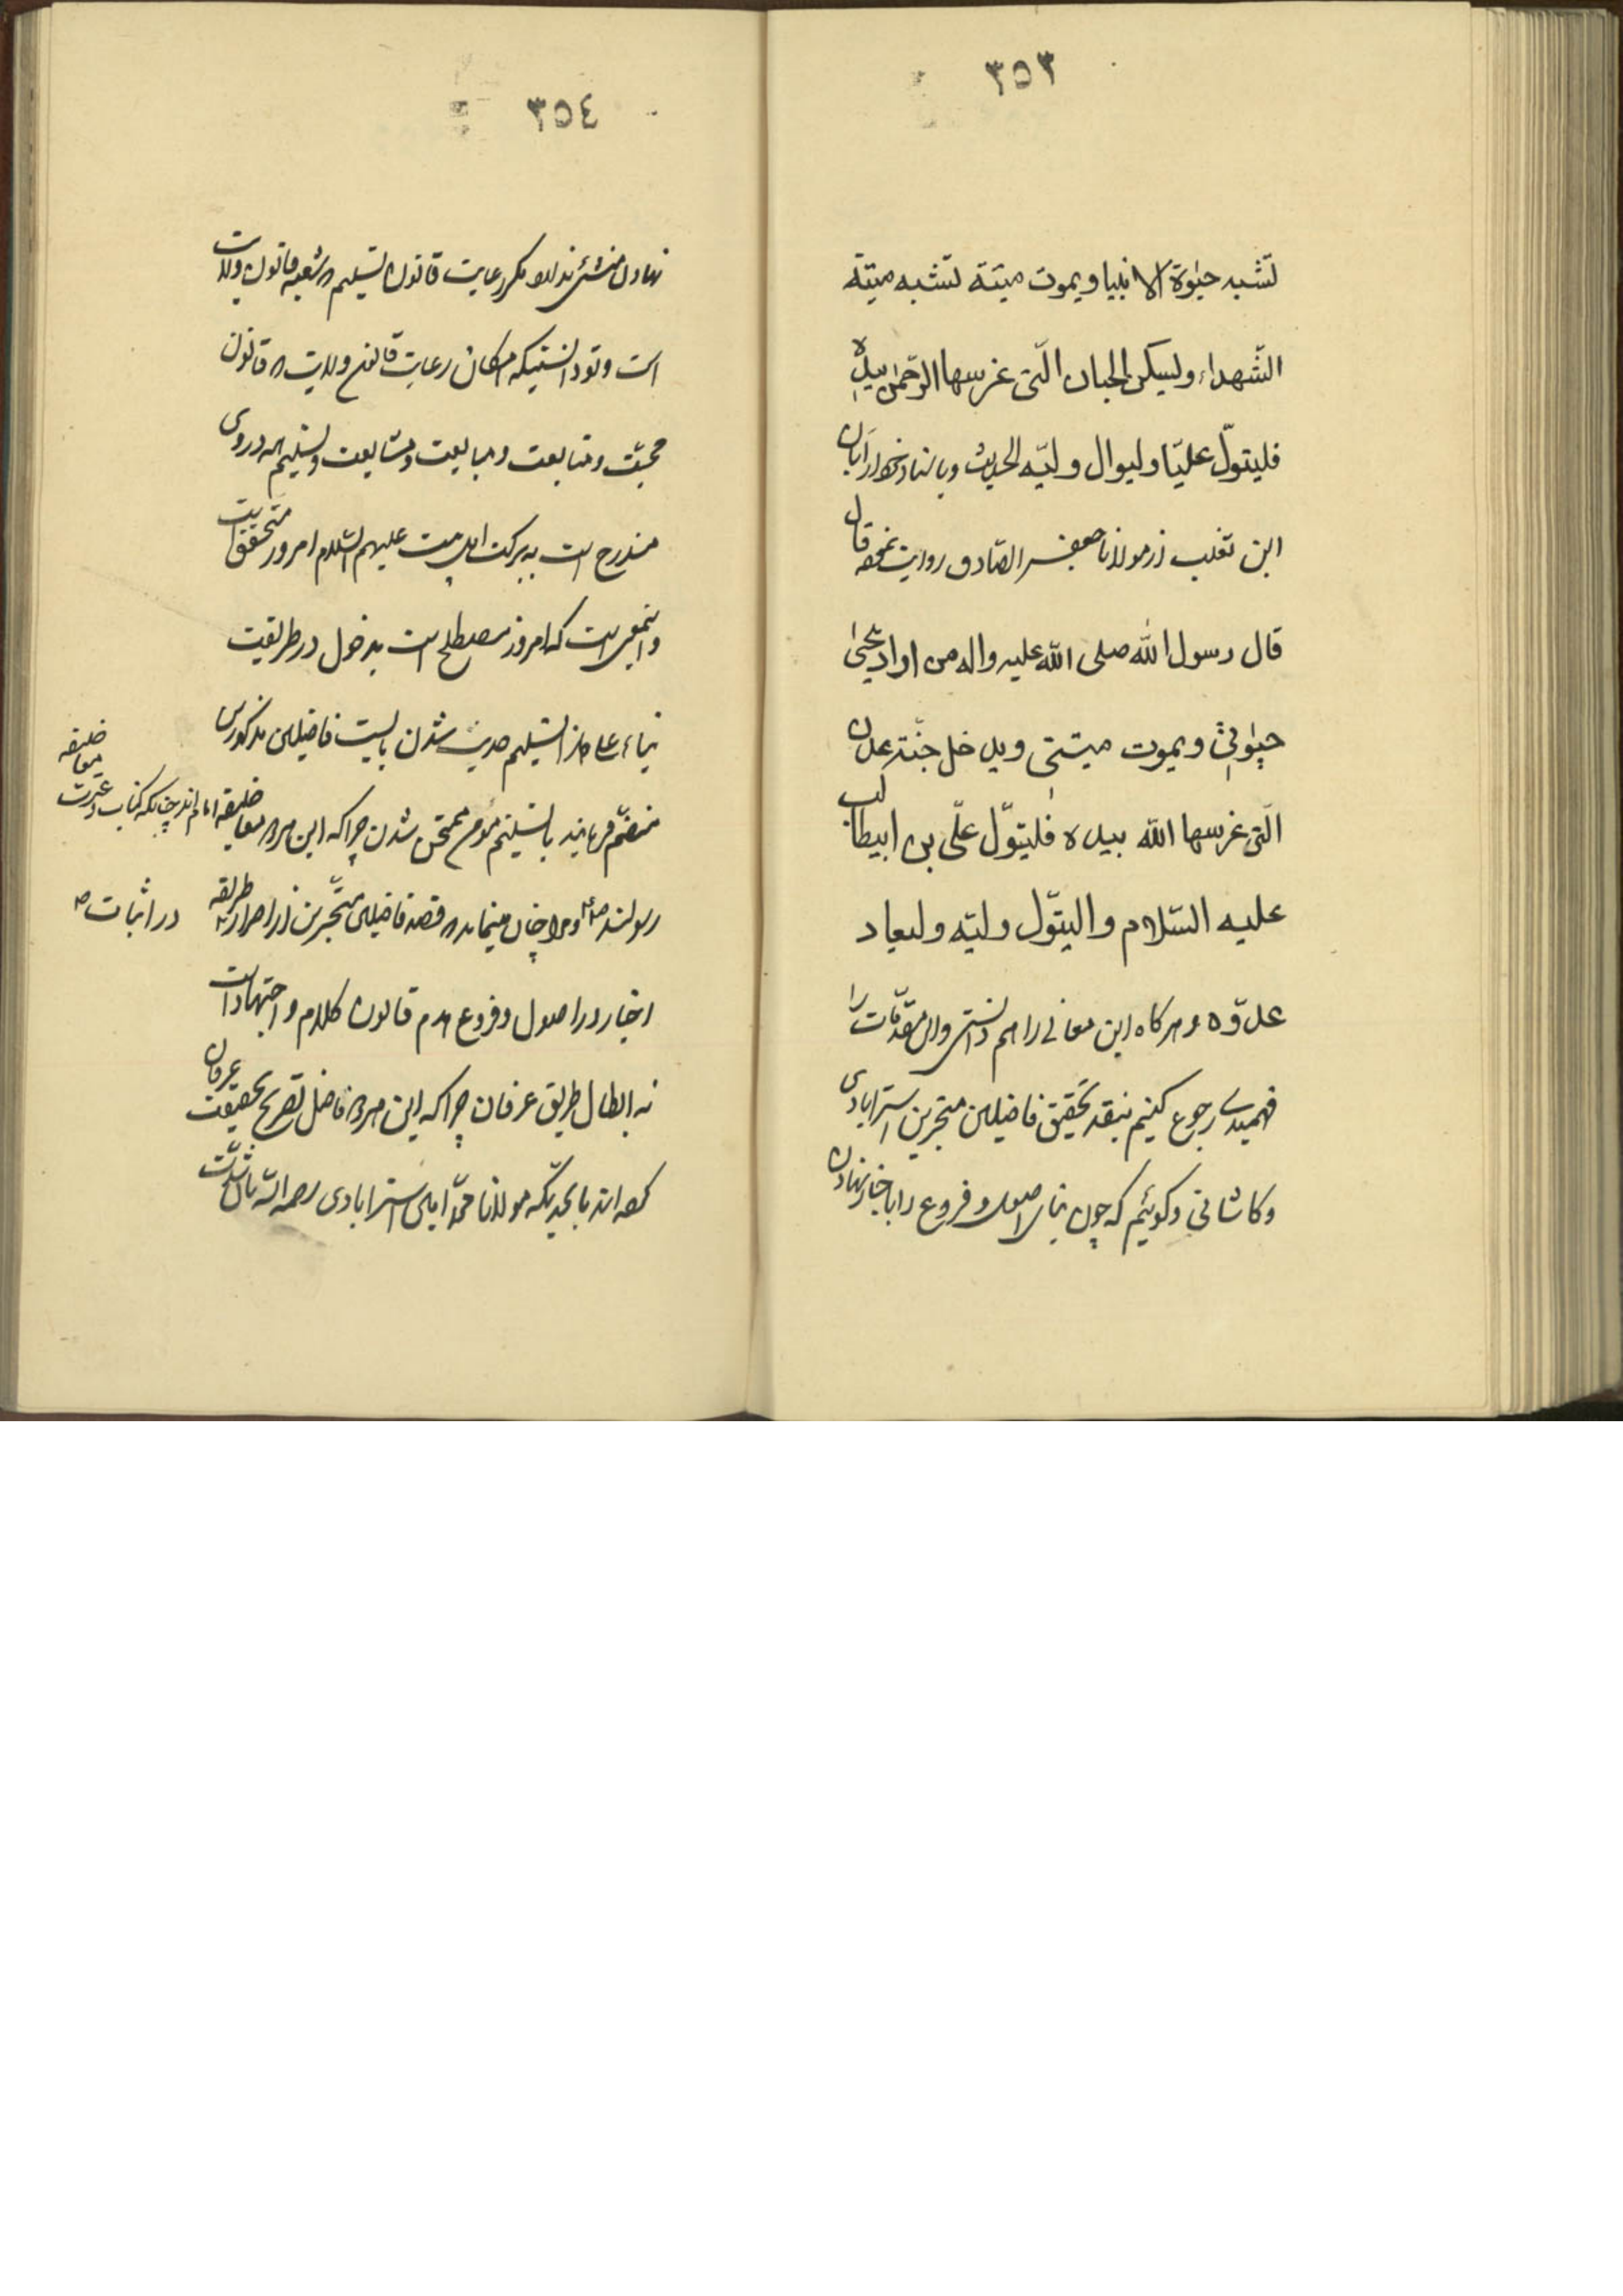 ٣٥٣
تشبه حیٰوة الانبیا ویموت میتة تشبه میتة
الشّهداء ولیسکن الجنان الّتی غرسها الرّحمٰن بیده
فلیتولّ علیّا ولیوال ولیّه الحدیث وباسناد ابان
ابن تغلب از مولانا جعفر الصّادق روایت نموده قال
قال رسول الله صلی الله علیه واله من اراد یحیٰی
حیٰوتی ویموت میتتی ویدخل جنّة عدن
الّتی غرسها الله بیده فلیتولّ علّی بن ابیطالب
علیه السّلام والیتوّل ولیّه ولیعاد
عدوّه و هرکاه این معانی را هم دانستی واین مقدّمات را
فهمیدی رجوع کنیم بنقد تحقیق فاضلین متبحرین استرابادی
وکاشانی وکوئیم که چون بنای اصول وفروع را باخبار نهادن
٣٥٤
نهادن منشئی ندارد مکر رعایت قانون تسلیم که شعبه قانون ولایت
است وتو دانستیکه امکان رعایت قانون ولایت که قانون
محبّت ومتابعت ومبایعت ومشایعت وتسلیم در وی
مندرج است به برکت اهل بیت علیهم السّلام امروز متحقق است
واینمعنی است که امروز مصطلح است بدخول در طریقت
بناء علی هذا تسلیم حدیث شدن بایست فاضلین مذکورین
منضّم فرمایند با تسلیم مؤمن ممتحن شدن چرا که این هر دو معا خلیفه
رسولند ص و مرا چنان مینماید که قصد فاضلین متبّحرین از اصرار بطریقه
اخبار در اصول وفروع هدم قانون کلام و اجتهادات
نه ابطال طریق عرفان چرا که این هر دو فاضل تصریح بحقیقت عرفان
کرده اند بحدّیکه مولانا محمّد امین استرابادی رحمه الله باشدّت
خلیفه
معا
امام اند چنانکه کتاب وعترت
در اثبات